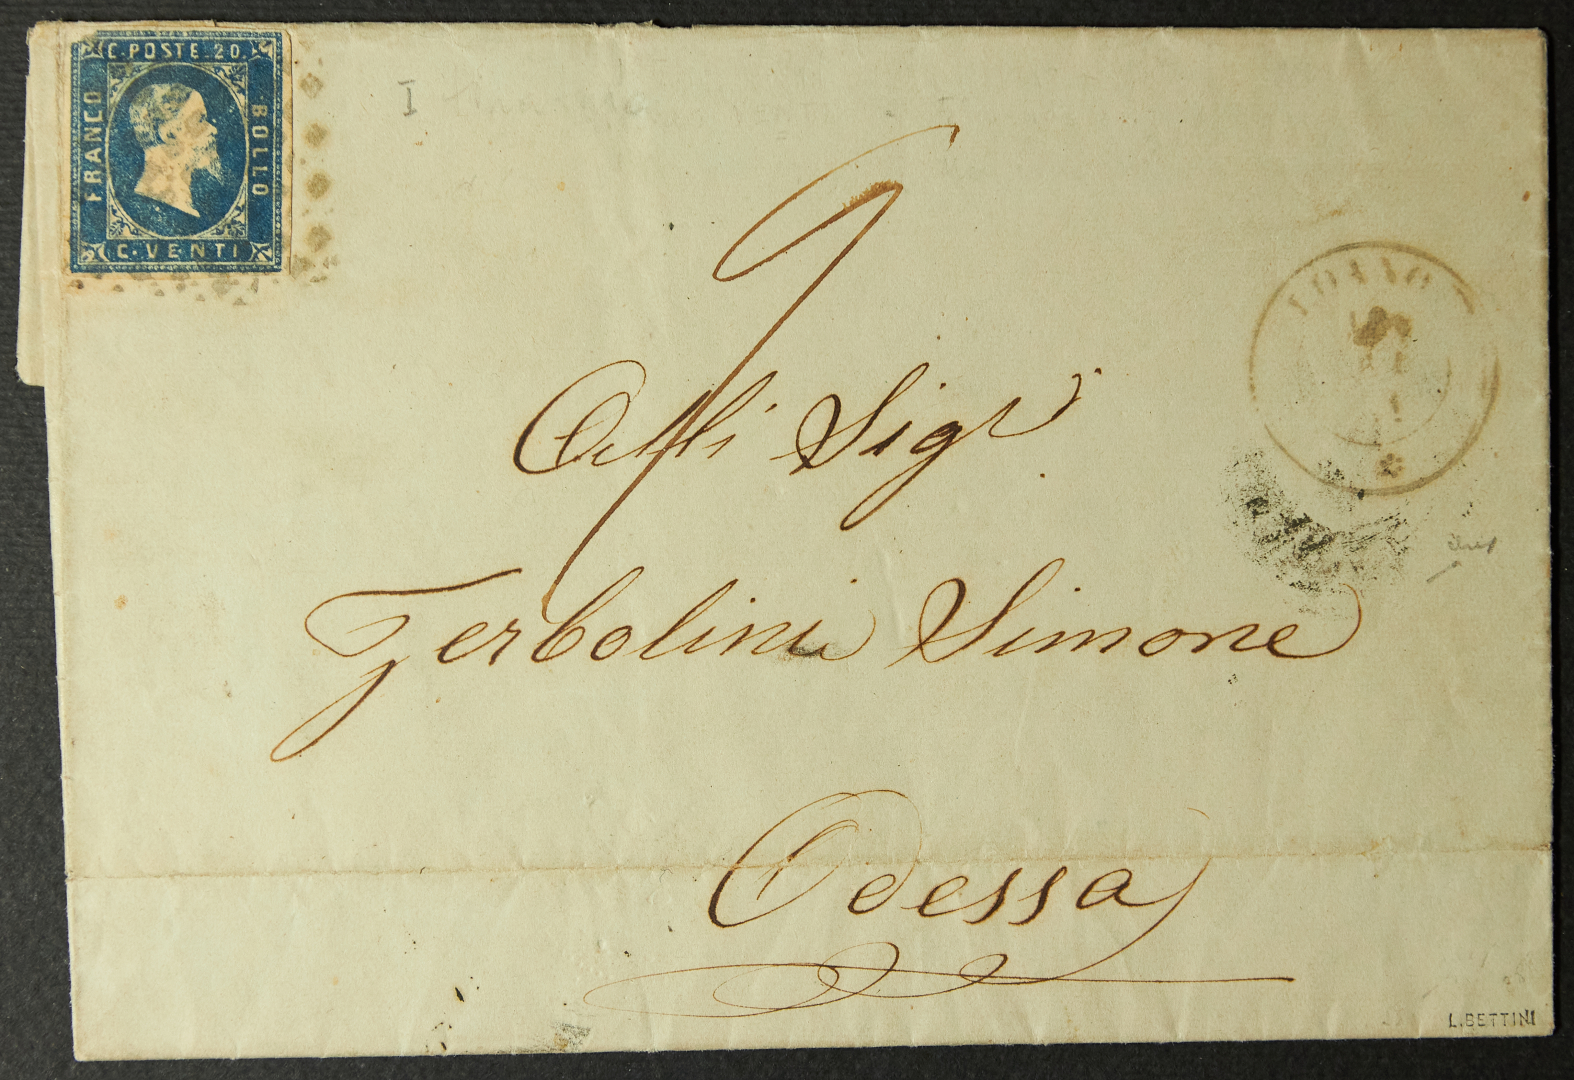 C. POSTE 20.
FRANCO
BOLLO
C. VENTI
I
Alli Sigri
Gerbolini Simone
Odessa
L.BETTINI